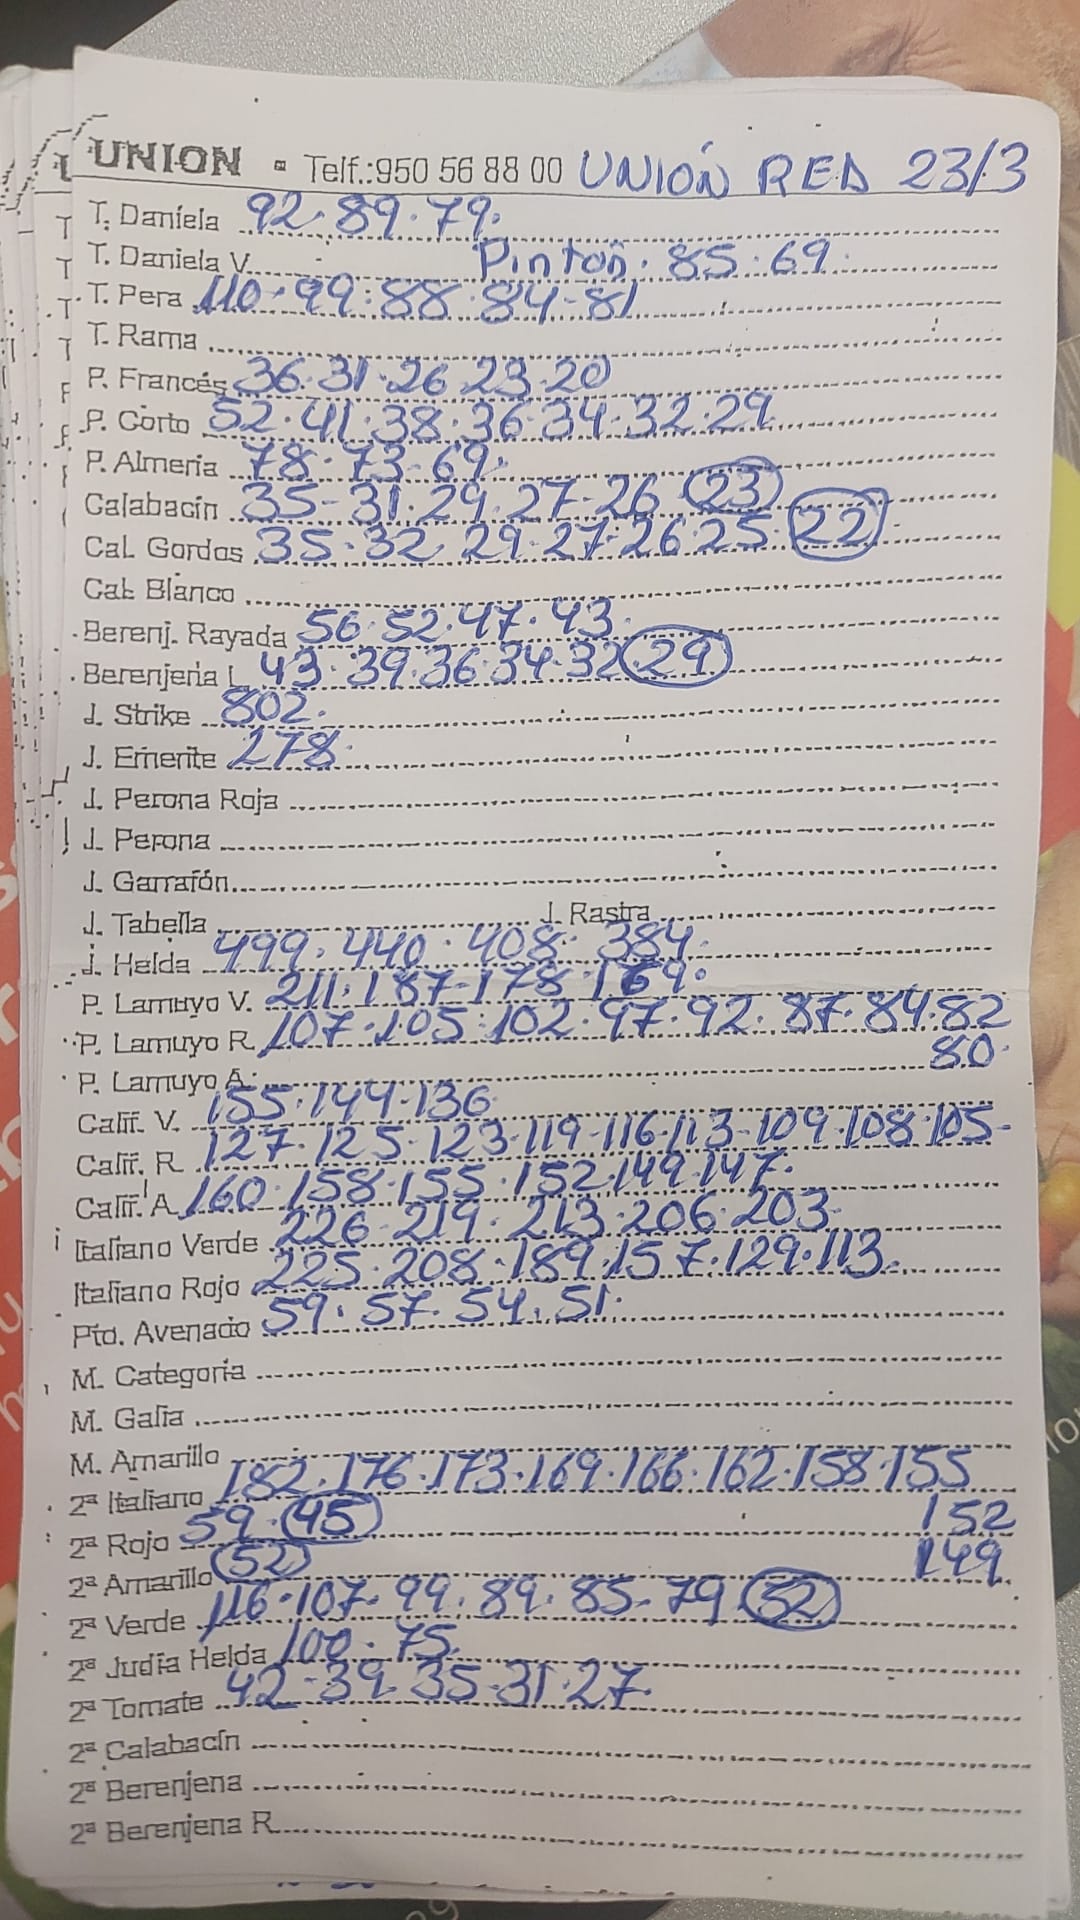 UNION - Telf.:950 56 88 00 UNIÓN RED 23/3
T. Daniela 92.89.79.
T. Daniela V. Pinton.85.69.
T. Pera 110.99.88.84-81
T. Rama
P. Francés 36.31.26.23.20
P. Corto 52.41.38.36.34.32.29
P. Almeria 78.73-69.
Calabacín 35-31.29.27-26 (23)
Cal. Gordos 35.32.29.27.26.25.(22)
Cal. Blanco
Berenj. Rayada 56.52.47.43.
Berenjena L 43.39.36.34-32(29)
J. Strike 802.
J. Emerite 278.
J. Perona Roja
J. Perona
J. Garrafón
J. Tabella J. Rastra
J. Helda 499.440.408.384.
P. Lamuyo V. 211.187-178.169.
P. Lamuyo R. 107.105.102.97.92.87.84.82
P. Lamuyo A. 80.
Calif. V. 155.144-136
Calif. R. 127.125-123-119-116.113-109.108.105-
Calif. A. 160.158.155.152.149.147.
Italiano Verde 226-219.213.206.203.
Italiano Rojo 225.208.189.157.129.113.
Pto. Avenado 59.57.54.51.
M. Categoria
M. Galia
M. Amarillo
2ª Italiano 182.176.173.169.166.162.158.155
2ª Rojo 59.(45) 152
2ª Amarillo (52) 149
2ª Verde 116.107.99.89.85-79 (52)
2ª Judía Helda 100.75.
2ª Tomate 42-39.35-31.27.
2ª Calabacín
2ª Berenjena
2ª Berenjena R.